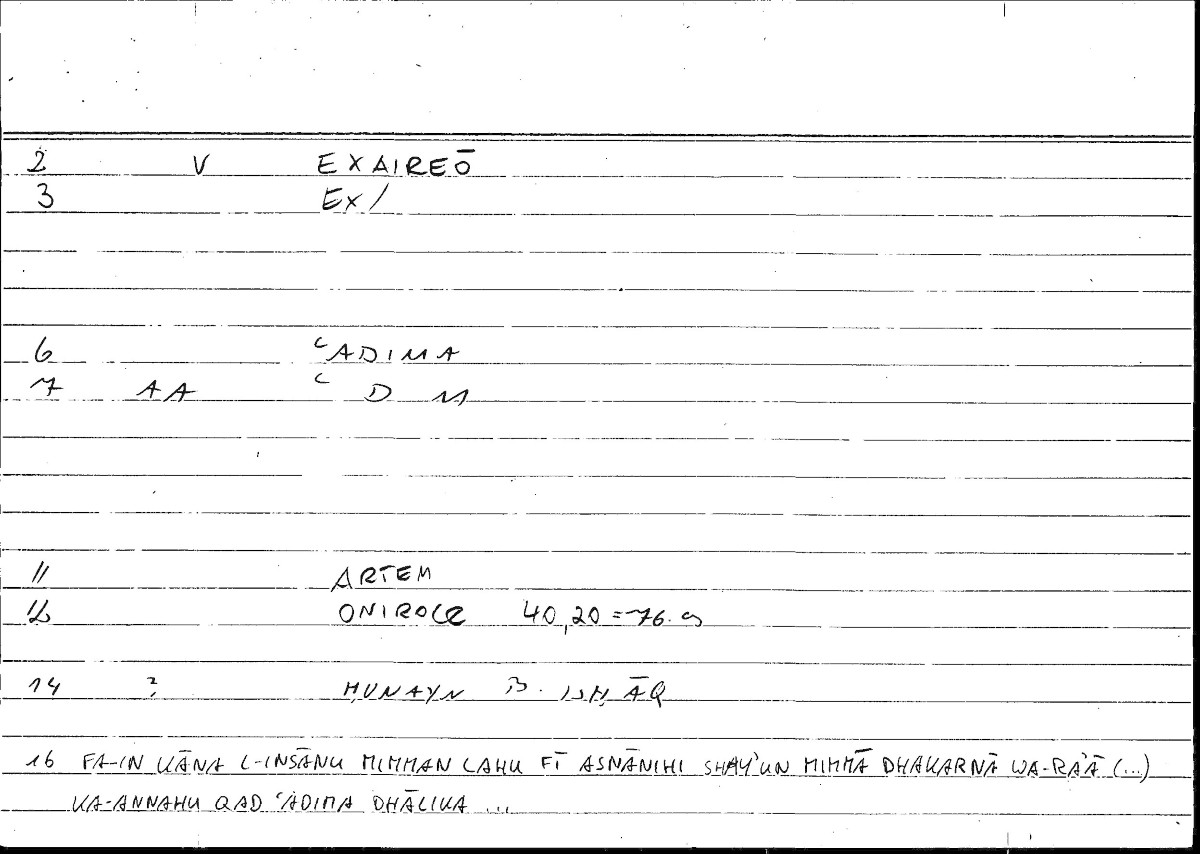 2 V EXAIREŌ
3 Ex/
6 ʿADIMA
7 AA ʿ D M
11 ARTEM
12 ONIROCR 40,20 = 76.9
14 ? ḤUNAYN B. ISḤĀQ
16 FA-IN KĀNA L-INSĀNU MIMMAN LAHU FĪ ASNĀNIHI SHAY'UN MIMMĀ DHAKARNĀ WA-RA'Ā (...)
KA-ANNAHU QAD ʿADIMA DHĀLIKA ...